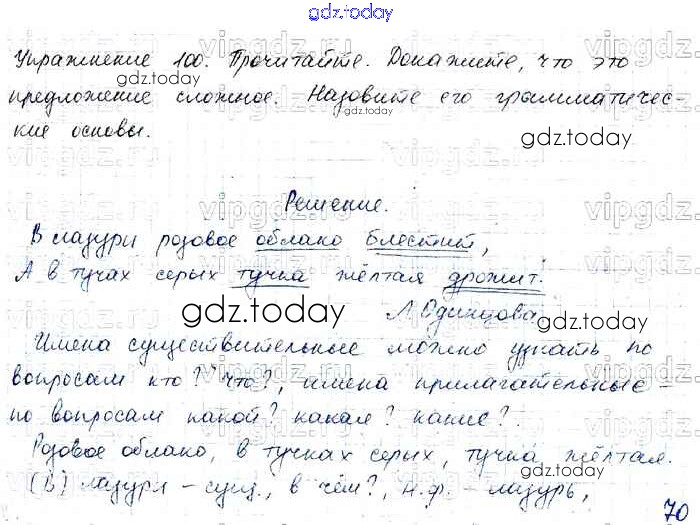 gdz.today
Упражнение 100. Прочитайте. Докажите, что это
предложение сложное. Назовите его грамматичес-
кие основы.
gdz.today
gdz.today
Решение.
В лазури розовое облако блестит,
А в тучах серых тучка жёлтая дрожит.
Л Одинцова
gdz.today
gdz.today
Имена существительные можно узнать по
вопросам кто? что?, имена прилагательные -
по вопросам какой? какая? какие?
gdz.today
Розовое облако, в тучках серых, тучка жёлтая.
gdz.today
(В) лазури - сущ., в чём?, н.ф. - лазурь,
70